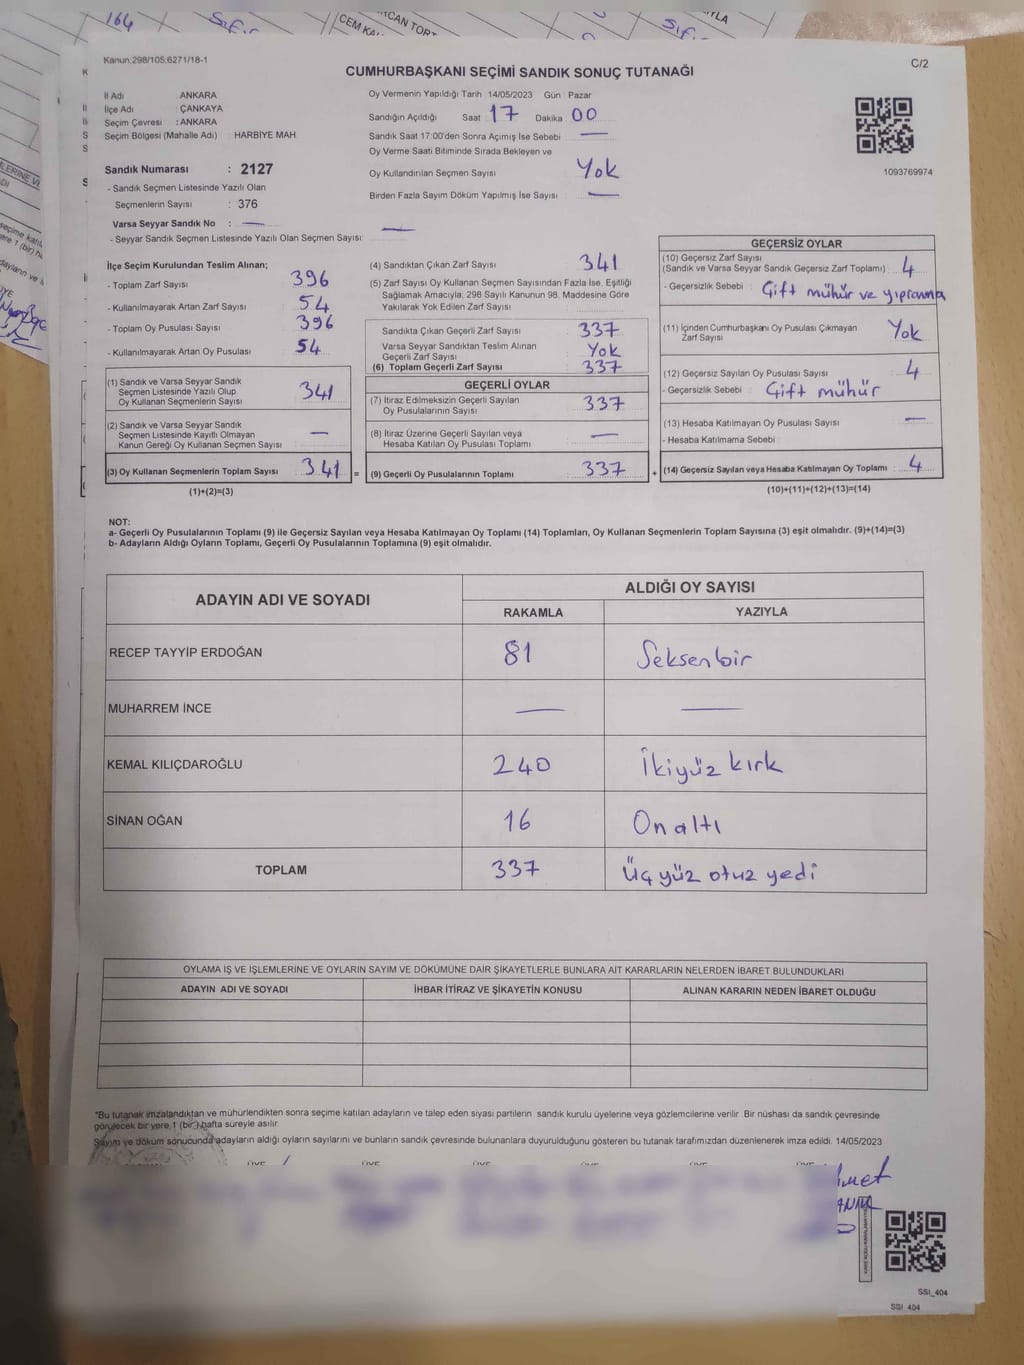 164 Sıfır CEM KA CAN TORT Sıf YLA
Kanun.298/105;6271/18-1
C/2
CUMHURBAŞKANI SEÇİMİ SANDIK SONUÇ TUTANAĞI
İl Adı : ANKARA
İlçe Adı : ÇANKAYA
Seçim Çevresi : ANKARA
Seçim Bölgesi (Mahalle Adı) : HARBİYE MAH
Sandık Numarası : 2127
- Sandık Seçmen Listesinde Yazılı Olan
Seçmenlerin Sayısı : 376
Varsa Seyyar Sandık No : —
- Seyyar Sandık Seçmen Listesinde Yazılı Olan Seçmen Sayısı: —
Oy Vermenin Yapıldığı Tarih : 14/05/2023 Gün : Pazar
Sandığın Açıldığı Saat : 17 Dakika : 00
Sandık Saat 17:00'den Sonra Açımış İse Sebebi : —
Oy Verme Saati Bitiminde Sırada Bekleyen ve
Oy Kullandırılan Seçmen Sayısı : Yok
Birden Fazla Sayım Döküm Yapılmış İse Sayısı : —
1093769974
İlçe Seçim Kurulundan Teslim Alınan;
- Toplam Zarf Sayısı : 396
- Kullanılmayarak Artan Zarf Sayısı : 54
- Toplam Oy Pusulası Sayısı : 396
- Kullanılmayarak Artan Oy Pusulası : 54
(1) Sandık ve Varsa Seyyar Sandık
Seçmen Listesinde Yazılı Olup
Oy Kullanan Seçmenlerin Sayısı : 341
(2) Sandık ve Varsa Seyyar Sandık
Seçmen Listesinde Kayıtlı Olmayan
Kanun Gereği Oy Kullanan Seçmen Sayısı : —
(3) Oy Kullanan Seçmenlerin Toplam Sayısı : 341 =
(1)+(2)=(3)
(4) Sandıktan Çıkan Zarf Sayısı : 341
(5) Zarf Sayısı Oy Kullanan Seçmen Sayısından Fazla İse, Eşitliği
Sağlamak Amacıyla, 298 Sayılı Kanunun 98. Maddesine Göre
Yakılarak Yok Edilen Zarf Sayısı :
Sandıkta Çıkan Geçerli Zarf Sayısı : 337
Varsa Seyyar Sandıktan Teslim Alınan
Geçerli Zarf Sayısı : Yok
(6) Toplam Geçerli Zarf Sayısı : 337
GEÇERLİ OYLAR
(7) İtiraz Edilmeksizin Geçerli Sayılan
Oy Pusulalarının Sayısı : 337
(8) İtiraz Üzerine Geçerli Sayılan veya
Hesaba Katılan Oy Pusulası Toplamı : —
(9) Geçerli Oy Pusulalarının Toplamı : 337 +
GEÇERSİZ OYLAR
(10) Geçersiz Zarf Sayısı
(Sandık ve Varsa Seyyar Sandık Geçersiz Zarf Toplamı) : 4
- Geçersizlik Sebebi : Çift mühür ve yıpranma
(11) İçinden Cumhurbaşkanı Oy Pusulası Çıkmayan
Zarf Sayısı : Yok
(12) Geçersiz Sayılan Oy Pusulası Sayısı : 4
- Geçersizlik Sebebi : Çift mühür
(13) Hesaba Katılmayan Oy Pusulası Sayısı : —
- Hesaba Katılmama Sebebi :
(14) Geçersiz Sayılan veya Hesaba Katılmayan Oy Toplamı : 4
(10)+(11)+(12)+(13)=(14)
NOT:
a- Geçerli Oy Pusulalarının Toplamı (9) ile Geçersiz Sayılan veya Hesaba Katılmayan Oy Toplamı (14) Toplamları, Oy Kullanan Seçmenlerin Toplam Sayısına (3) eşit olmalıdır. (9)+(14)=(3)
b- Adayların Aldığı Oyların Toplamı, Geçerli Oy Pusulalarının Toplamına (9) eşit olmalıdır.
ADAYIN ADI VE SOYADI ALDIĞI OY SAYISI
RAKAMLA YAZIYLA
RECEP TAYYİP ERDOĞAN 81 Seksenbir
MUHARREM İNCE — —
KEMAL KILIÇDAROĞLU 240 İkiyüz kırk
SİNAN OĞAN 16 On altı
TOPLAM 337 Üç yüz otuz yedi
OYLAMA İŞ VE İŞLEMLERİNE VE OYLARIN SAYIM VE DÖKÜMÜNE DAİR ŞİKAYETLERLE BUNLARA AİT KARARLARIN NELERDEN İBARET BULUNDUKLARI
ADAYIN ADI VE SOYADI İHBAR İTİRAZ VE ŞİKAYETİN KONUSU ALINAN KARARIN NEDEN İBARET OLDUĞU
*Bu tutanak imzalandıktan ve mühürlendikten sonra seçime katılan adayların ve talep eden siyasi partilerin sandık kurulu üyelerine veya gözlemcilerine verilir. Bir nüshası da sandık çevresinde
görülecek bir yere 1 (bir) hafta süreyle asılır.
Sayım ve döküm sonucunda adayların aldığı oyların sayılarını ve bunların sandık çevresinde bulunanlara duyurulduğunu gösteren bu tutanak tarafımızdan düzenlenerek imza edildi. 14/05/2023
ÜYE ÜYE ÜYE ÜYE ÜYE ÜYE
SSI_404
SSI_404